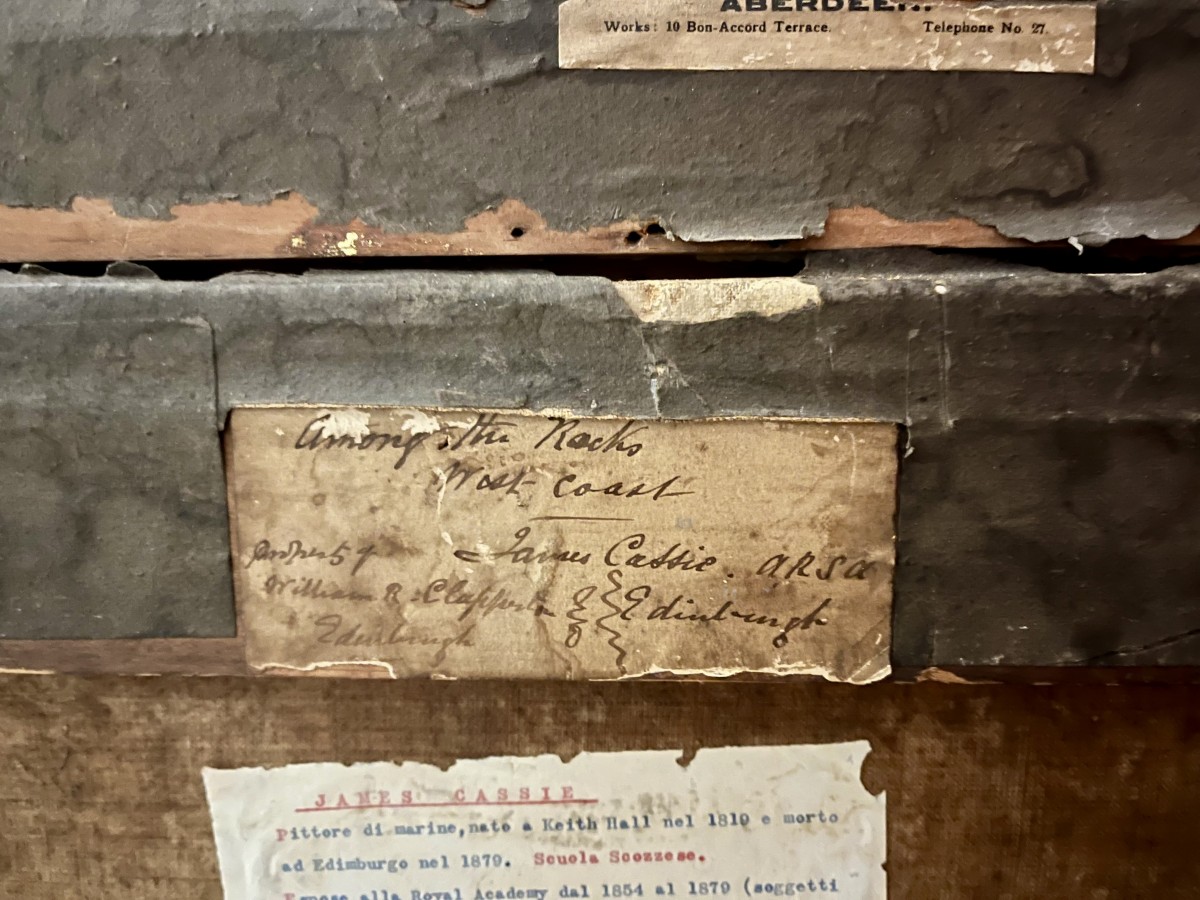 ABERDEEN.
Works: 10 Bon-Accord Terrace. Telephone No. 27.
Among the Rocks
West Coast
James Cassie. ARSA
Edinburgh
Property of
William R. Clapperton
Edinburgh
JAMES CASSIE
Pittore di marine,nato a Keith Hall nel 1819 e morto
ad Edimburgo nel 1879. Scuola Scozzese.
Espose alla Royal Academy dal 1854 al 1879 (soggetti